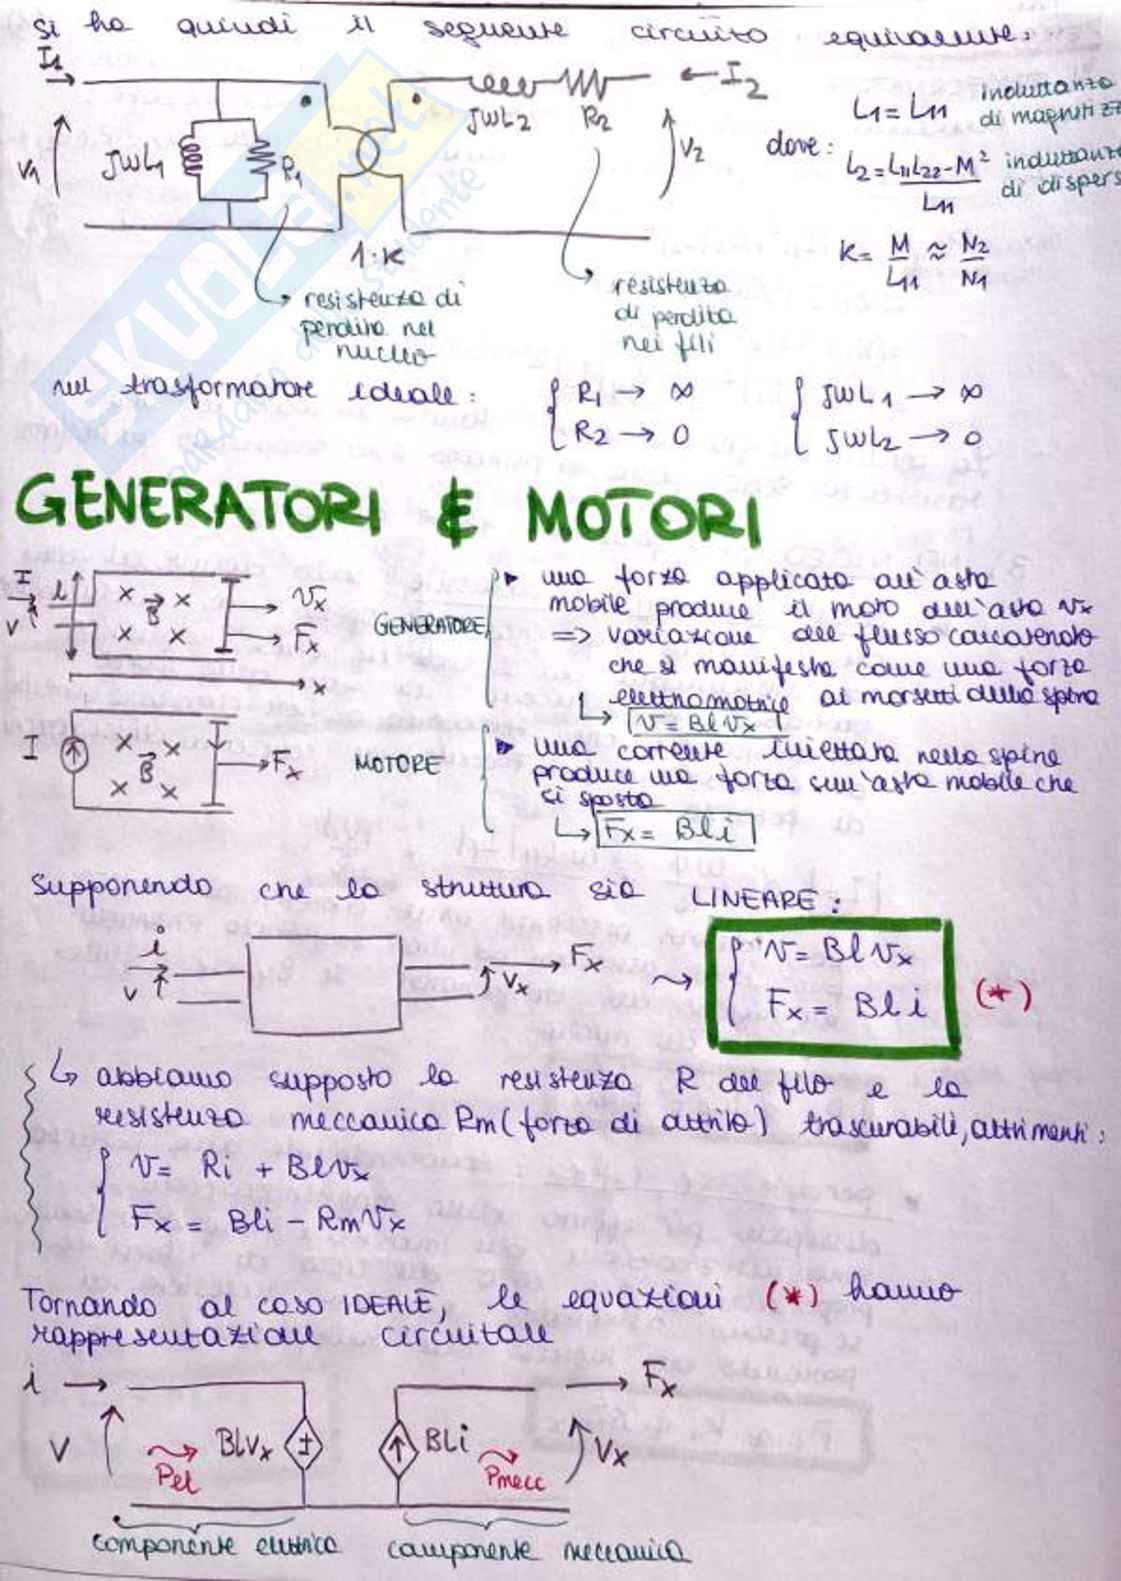 si ha quindi il seguente circuito equivalente:
I1
I2
V1
jWL1
R1
jWL2
R2
V2
1:K
dove:
L1 = L11 induttanza di magnetizz
L2 = L11L22 - M² / L11 induttanza di dispers
K = M/L11 ≈ N2/N1
resistenza di
perdita nel
nucleo
resistenza
di perdita
nei fili
nel trasformatore ideale:
R1 → ∞
R2 → 0
jWL1 → ∞
jWL2 → 0
SKUOLA.net
GENERATORI & MOTORI
I
V
l
B
Vx
Fx
x
GENERATORE
una forza applicata all'asta
mobile produce il moto dell'asta Vx
=> variazione del flusso concatenato
che si manifesta come una forza
elettromotrice ai morsetti della spira
V = BlVx
I
B
Fx
MOTORE
una corrente iniettata nella spira
produce una forza sull'asta mobile che
si sposta
Fx = Bli
Supponendo che la struttura sia LINEARE:
i
V
Vx
Fx
V = BlVx
Fx = Bli
(*)
abbiamo supposto la resistenza R del filo e la
resistenza meccanica Rm (forza di attrito) trascurabili, altrimenti:
V = Ri + BlVx
Fx = Bli - RmVx
Tornando al caso IDEALE, le equazioni (*) hanno
rappresentazione circuitale
i
V
Pel
BlVx
Bli
Pmecc
Fx
Vx
componente elettrica
componente meccanica